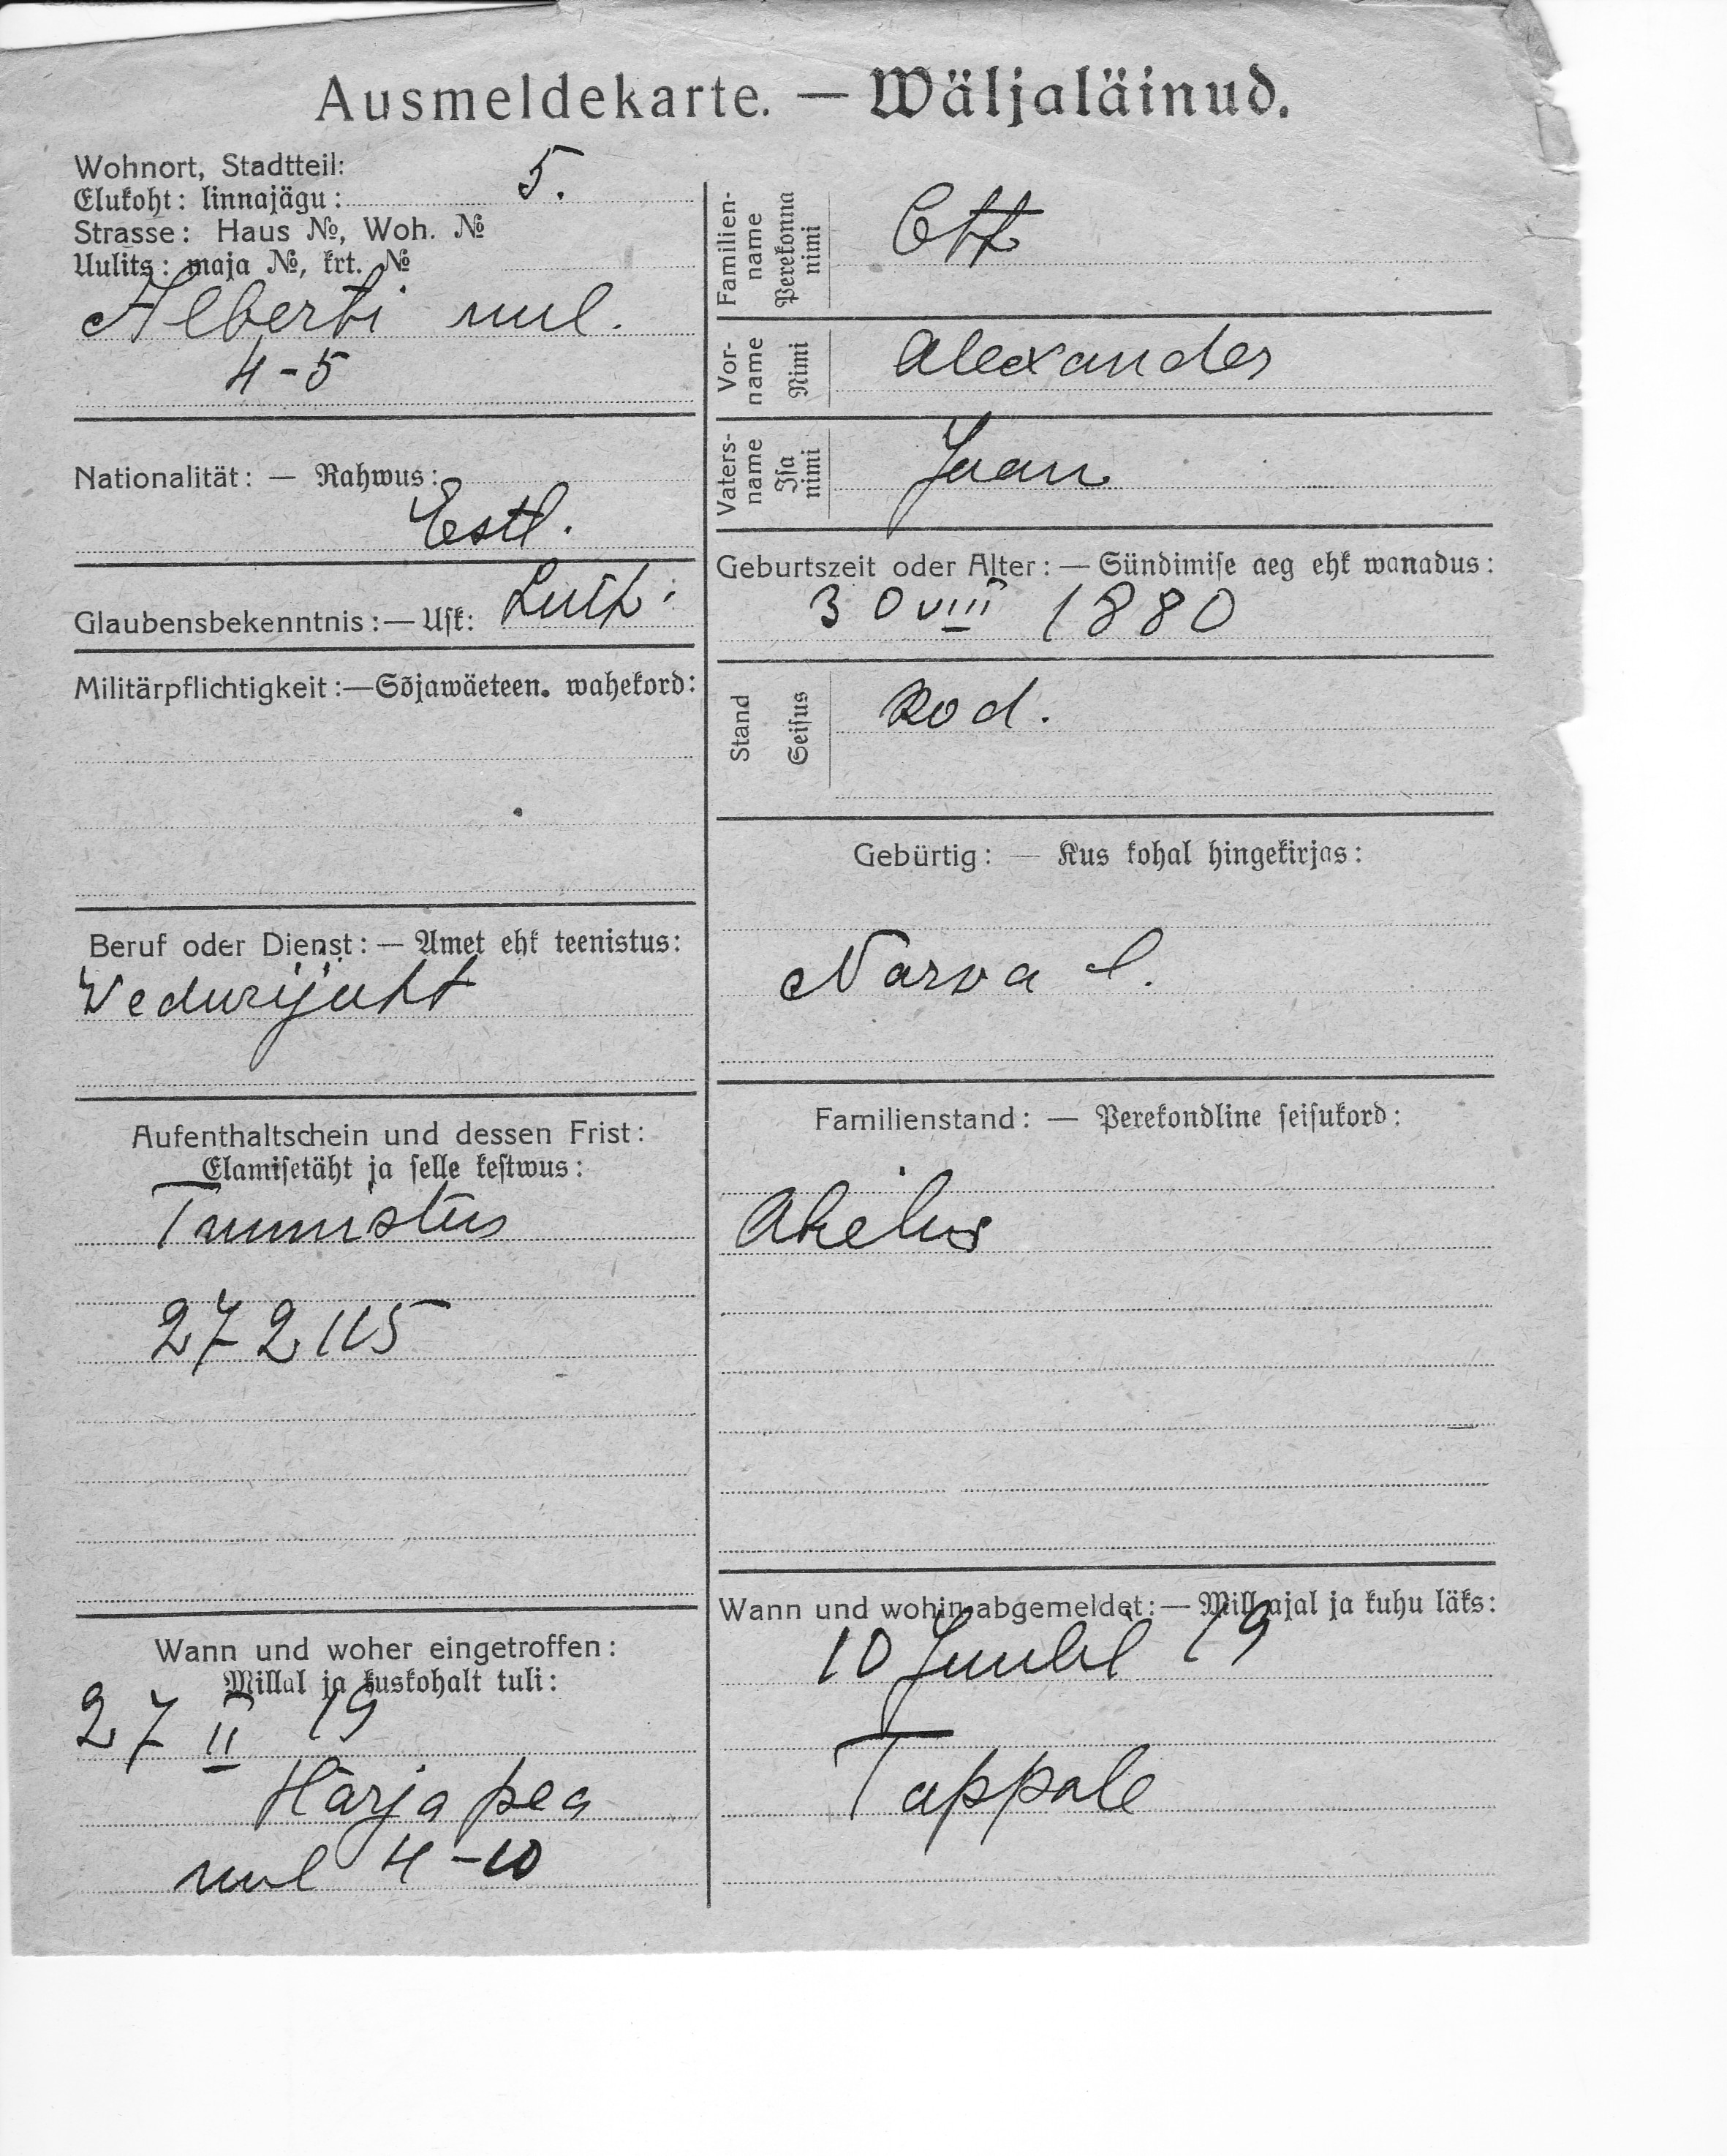 Ausmeldekarte. — Wäljaläinud.
Wohnort, Stadtteil:
Elukoht: linnajägu: 5.
Strasse: Haus №, Woh. №
Uulits: maja №, krt. №
Alberti uul.
4-5
Nationalität: — Rahwus:
Estl.
Glaubensbekenntnis: — Usk: Luth.
Militärpflichtigkeit: — Sõjawäeteen. wahekord:
Beruf oder Dienst: — Amet ehk teenistus:
Wedurijuht
Aufenthaltschein und dessen Frist:
Elamisetäht ja selle kestwus:
Tunnistus
272115
Wann und woher eingetroffen:
Millal ja kuskohalt tuli:
27 II 19
Härjapea
uul 4-10
Familien-
name
Perekonna
nimi
Ott
Vor-
name
Nimi
Alexander
Vaters-
name
Isa
nimi
Jaan
Geburtszeit oder Alter: — Sündimise aeg ehk wanadus:
30 VIII 1880
Stand
Seisus
Kod.
Gebürtig: — Kus kohal hingekirjas:
Narva l.
Familienstand: — Perekondline seisukord:
Abielus
Wann und wohin abgemeldet: — Mill ajal ja kuhu läks:
10 Juulil 19
Tappale